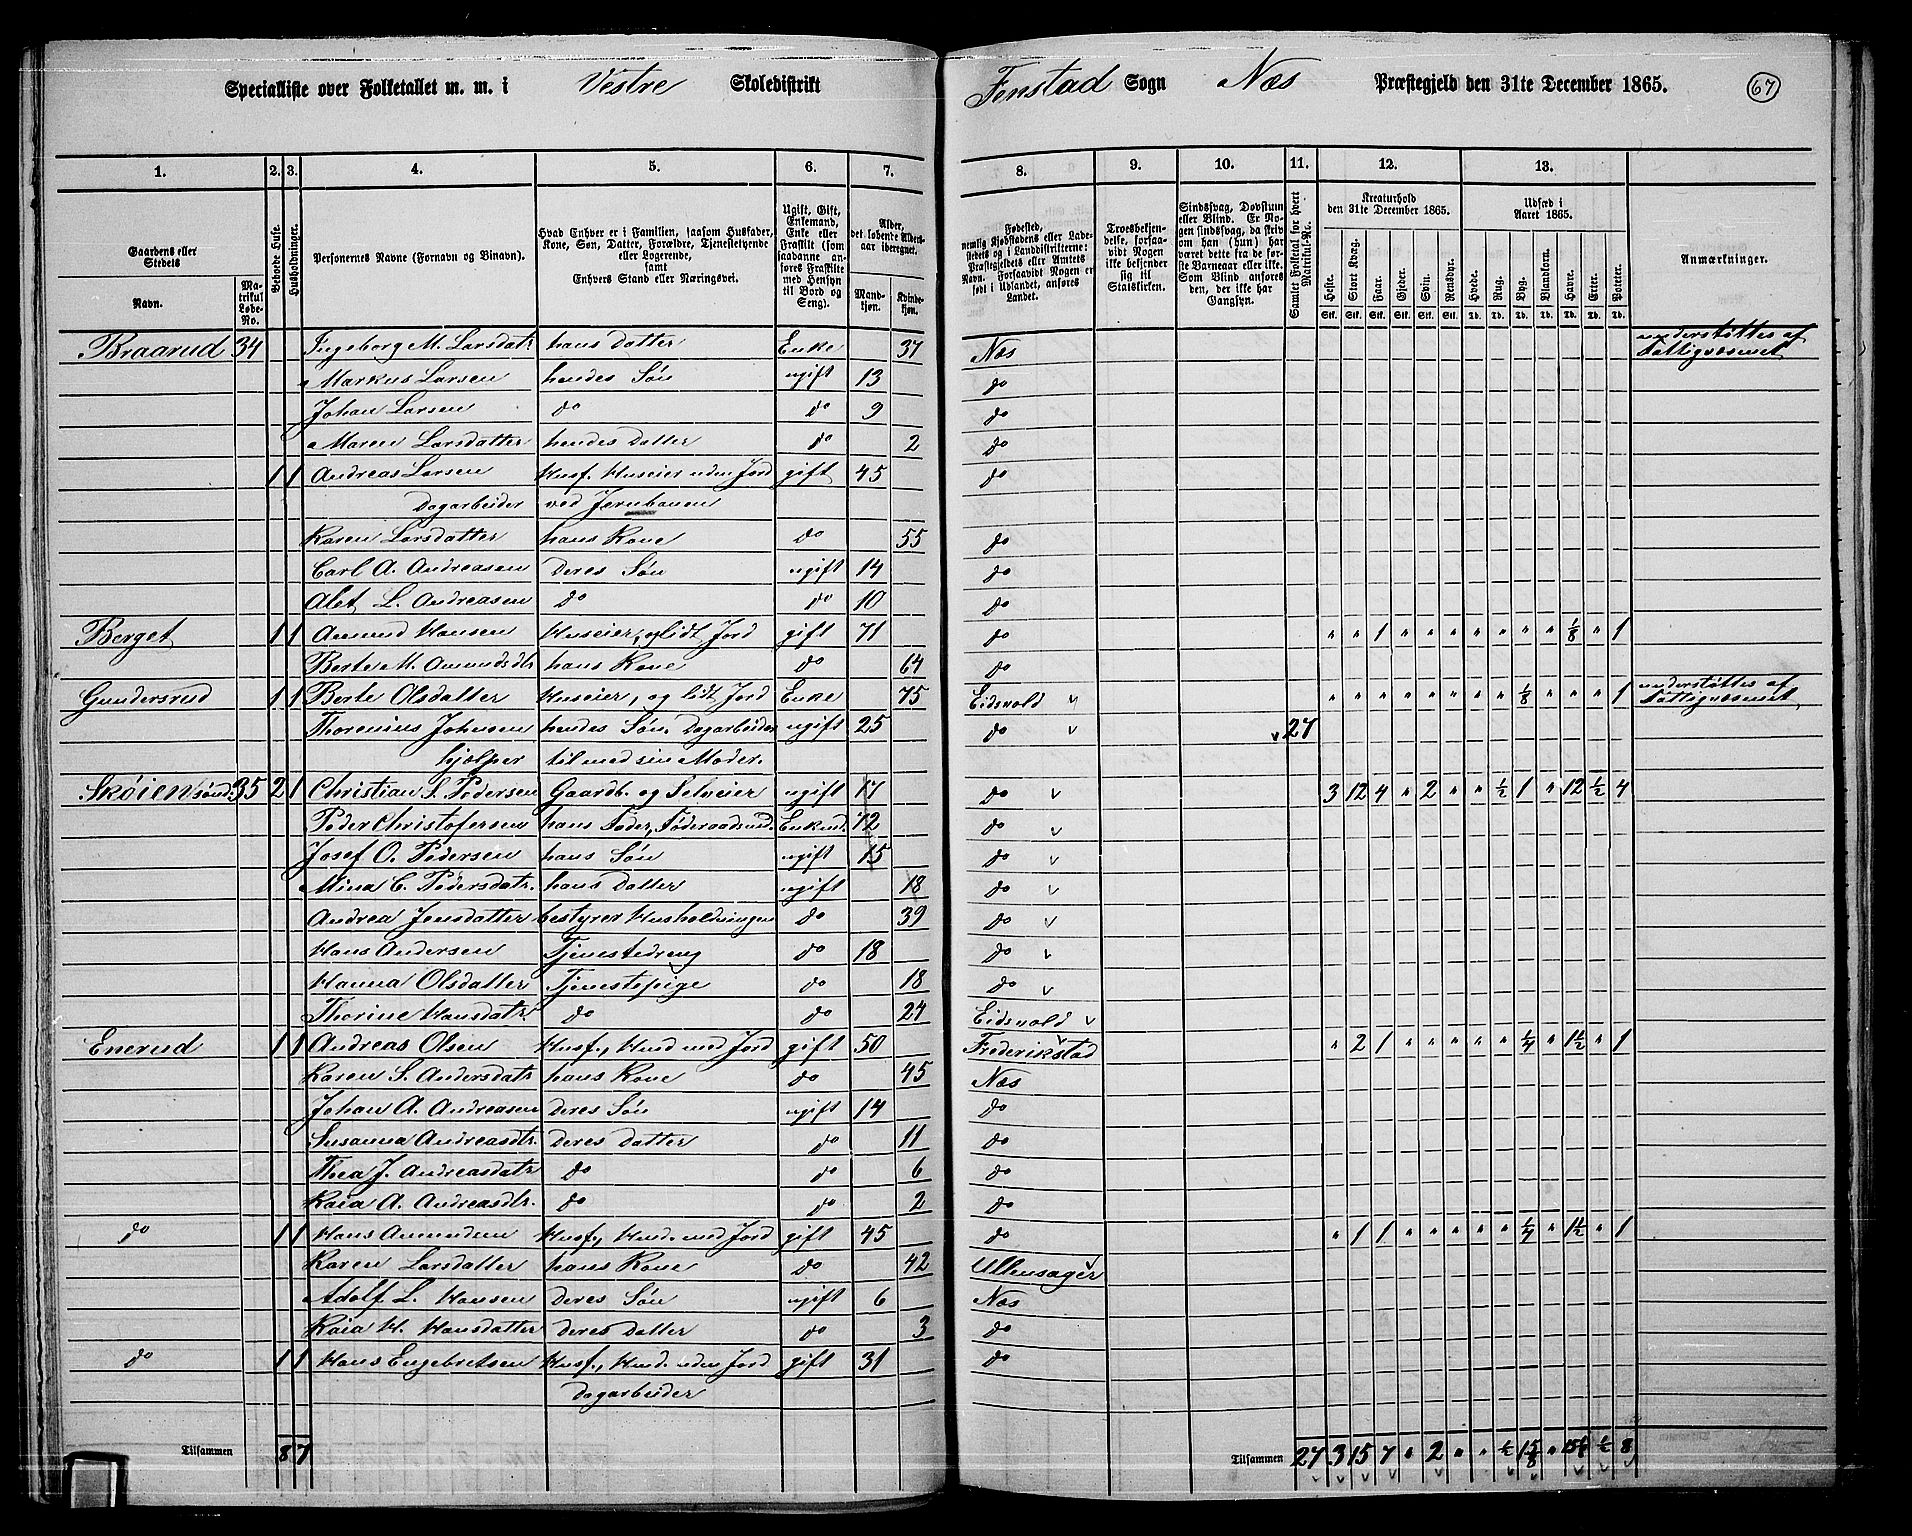 Specialliste over Folketallet m. m. i Vestre Skoledistrikt Fenstad Sogn Næs Præstegjeld den 31te December 1865. 67
1. 2. 3. 4. 5. 6. 7. 8. 9. 10. 11. 12. 13.
Gaardens eller Stedets Navn. Matrikul Løbe-No. Beboede Huse. Husholdninger. Personernes Navne (Fornavn og Binavn). Hvad Enhver er i Familien, saasom Husfader, Kone, Søn, Datter, Forældre, Tjenestetyende eller Logerende, samt Enhvers Stand eller Næringsvei. Ugift, Gift, Enkemand, Enke eller Fraskilt (som saadanne anføres Fraskilte med Hensyn til Bord og Seng). Alder, det løbende Alders-aar iberegnet. Mandkjøn. Kvindekjøn. Fødested, nemlig Kjøbstadens eller Ladestedets og i Landdistrikterne: Præstegjeldets eller Amtets Navn. Forsaavidt Nogen er født i Udlandet, anføres Landet. Troesbekjendelse, forsaavidt Nogen ikke bekjender sig til Statskirken. Sindssvag, Døvstum eller Blind. Er Nogen sindssvag, da skriv om han (hun) har været dette fra de første Barneaar eller ikke. Som Blind anføres den, der ikke har Gangsyn. Samlet Folketal for hvert Matrikul-Nr. Kreaturhold den 31te December 1865. Heste. Stort Kvæg. Faar. Gjeder. Svin. Rensdyr. Udsæd i Aaret 1865. Hvede. Rug. Byg. Blandkorn. Havre. Erter. Poteter. Anmærkninger.
Braarud 34 Ingeborg M. Larsdatr hans Datter Enke 37 Næs understøttes af Fattigvæsenet
Markus Larsen hendes Søn ugift 13 do
Johan Larsen do do 9 do
Maren Larsdatter hendes Datter do 2 do
1 1 Andreas Larsen Husf. Huseier uden Jord gift 45 do
Dagarbeider ved Jernbanen
Karen Larsdatter hans Kone do 55 do
Carl A. Andreasen Deres Søn ugift 14 do
Alet L. Andreasen do do 10 do
Berget 1 1 Amund Hansen Huseier, og lidt Jord gift 71 do " " 1 " " " " " " " 1/8 " 1
Berte M. Amundsdtr hans Kone do 64 do
Gundersrud 1 1 Berte Olsdatter Huseier, og lidt Jord Enke 75 Eidsvold " " " " " " " " 1/8 " " " 1 understøttes af Fattigvæsenet,
Thorenius Johnsen hendes Søn. Dagarbeider ugift 25 do 27
hjælper til med sin Moder.
Skøien sønd. 35 2 1 Christian S. Pedersen Gaardb. og Selveier ugift 17 do 3 12 4 " 2 " " 1/2 1 " 12 1/2 4
Peder Christofersen hans Fader, Føderaadsmd. Enkmd. 72 do
Josef O. Pedersen hans Søn ugift 15 do
Mina C. Pedersdatr. hans Datter ugift 18 do
Andrea Jensdatter bestyrer Husholdningen do 39 do
Hans Andersen Tjenestedreng do 18 do
Hanna Olsdatter Tjenestepige do 18 do
Thorine Hansdatr. do do 24 Eidsvold
Enerud 1 1 Andreas Olsen Husf., Husd. med Jord gift 50 Frederikstad " 2 1 " " " " " 1/4 " 1 1/2 " 1
Karen S. Andersdatr hans Kone do 45 Næs
Johan A. Andreasen Deres Søn ugift 14 do
Susanna Andreasdtr. Deres Datter do 11 do
Thea J. Andreasdatr do do 6 do
Kaia A. Andreasdtr. do do 2 do
do 1 1 Hans Amundsen Husf., Husd. med Jord gift 45 do " 1 1 " " " " " 1/4 " 1 1/2 " 1
Karen Larsdatter hans Kone do 42 Ullensager
Adolf L. Hansen Deres Søn ugift 6 Næs
Kaia H. Hansdatter Deres Datter do 3 do
do 1 1 Hans Engebretsen Husf., Husd. uden Jord gift 31 do
Dagarbeider
Tilsammen 8 7 Tilsammen 27 3 15 7 " 2 " " 1/2 1 5/8 " 15 1/8 1/2 8